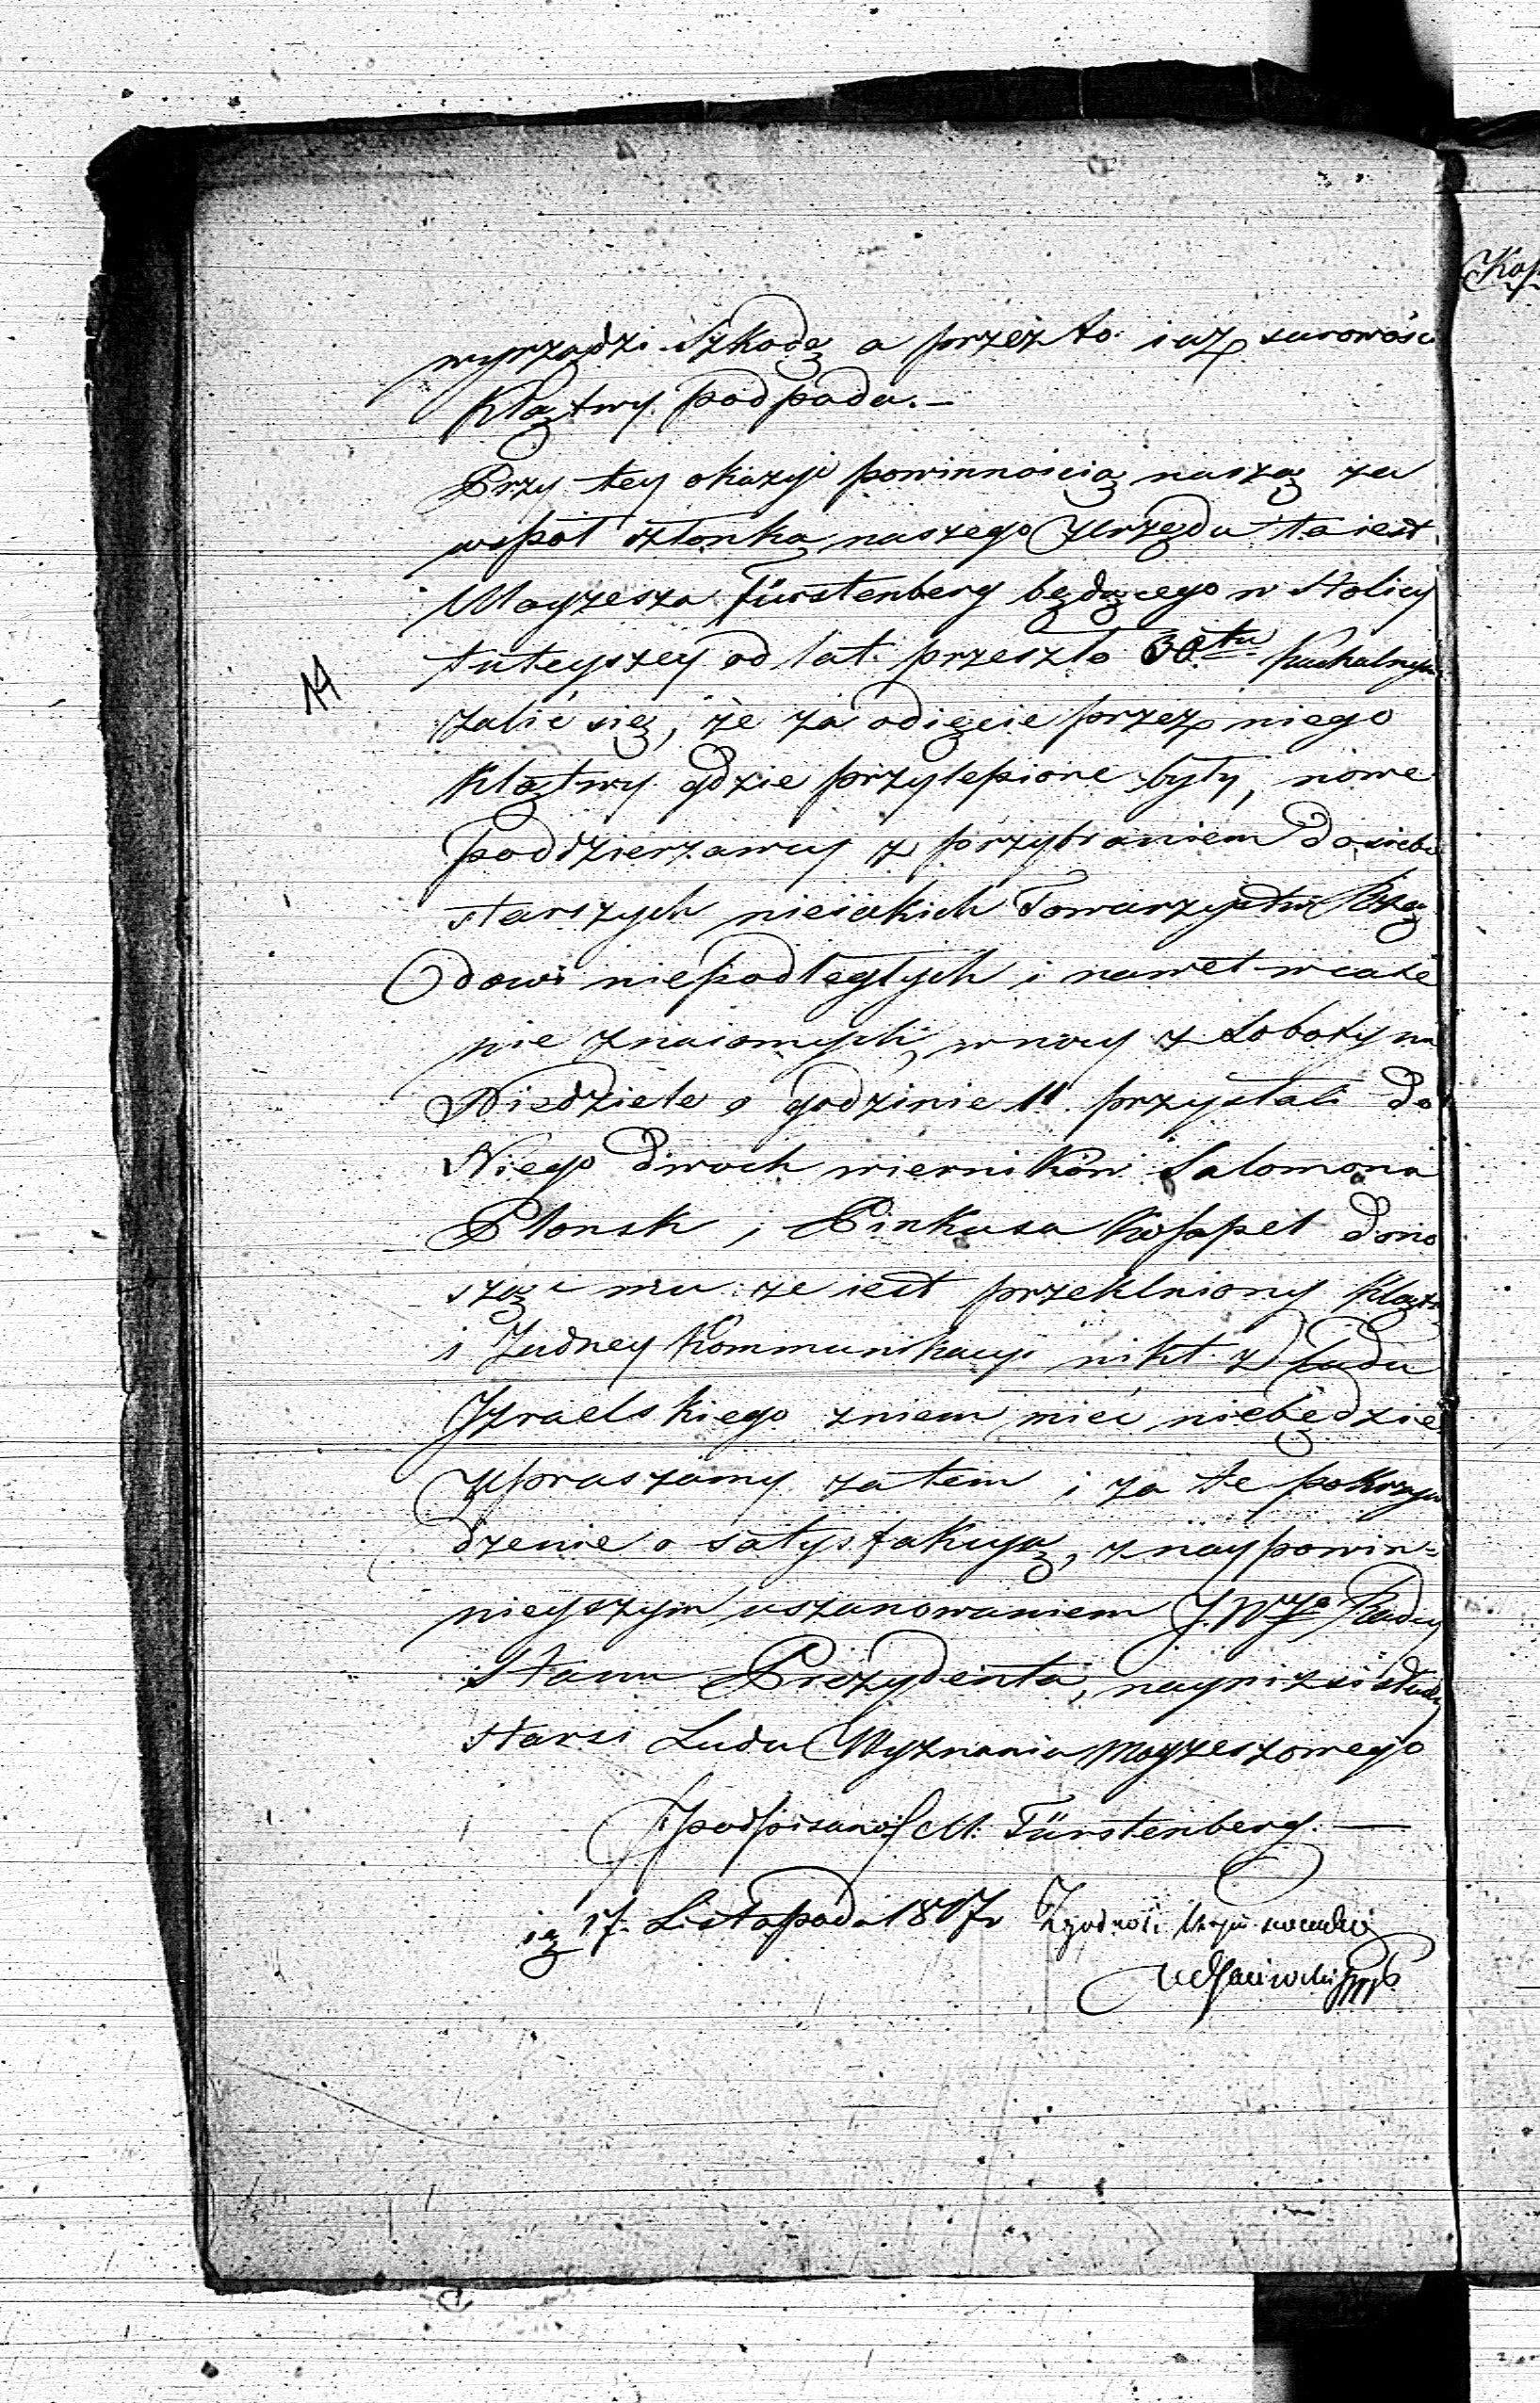 wyrządzi Szkodę a przez to iuż surowości
klątwy podpada. —
Przy tey okazyi powinnością naszą za
wspoł członka naszego Urzędu to iest
Moyzesza Fürstenberg będącego w Stolicy
tuteyszey od lat przeszło 30.tu
14
żalić się, że za odięcie przez niego
klątwy gdzie przylepione były, nowe
poddzierzawcy z przybraniem do siebie
starszych nieiakich Towarzystw Rzą
dowi niepodległych i nawet wcale
nie znaiomych, w nocy z Soboty na
Niedziele o godzinie 11 przysłali do
Niego dwoch wiernikow Salomona
Płonsk i Pinkusa dono
sząc mu że iest przeklniony klątwą
i Żadney Kommunikacyi nikt z Ludu
Izraelskiego zniem mieć niebędzie
Upraszamy zatem i za te pokrzyw
dzenie o satysfakcyą, z naypowin=
nieyszym uszanowaniem J.Wgo Radcy
Stanu Prezydenta, nayniżsi słudzy
starsi Ludu Wyznania Moyzeszowego
/podpisano/ M. Fürstenberg. —
17. Listopada 1817r Zgodność
Kop